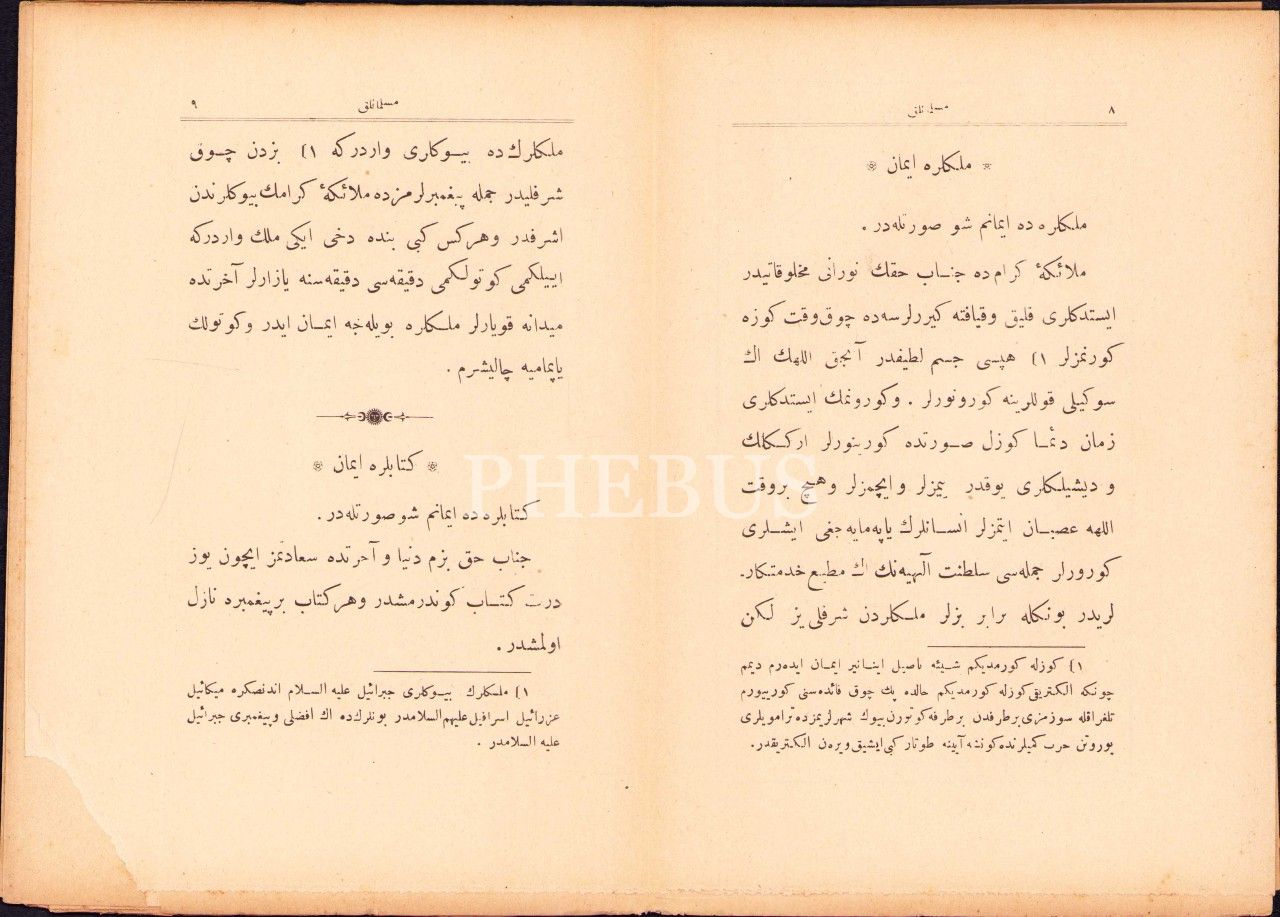 ٨
مسلمانلق
ملکلره ایمان
ملکلره ده ایمانم شو صورتله در .
ملائکهٔ کرام ده جناب حقك نورانی مخلوقاتیدر
ایستدکلری قلیق وقیافته کیررلرسه ده چوق وقت کوزه
کورنمزلر ١) هپسی جسم لطیفدر آنجق اللهك اك
سوکیلی قوللرینه کورونورلر . وکورونمك ایستدکلری
زمان دئما کوزل صورتده کورینورلر ارککلك
و دیشیلکلری یوقدر یمزلر وایچمزلر وهیچ بروقت
اللهه عصیان ایتمزلر انسانلرك یاپه مایه جغی ایشلری
کورورلر جمله سی سلطنت آلهیه نك اك مطیع خدمتکار.
لریدر بونکله برابر بزلر ملکلردن شرفلی یز لکن
١) کوزله کورمدیکم شیئه ناصیل اینانیر ایمان ایده رم دیمم
چونکه الکتریقی کوزله کورمدیکم حالده پك چوق فائده سنی کورییورم
تلغرافله سوزمزی برطرفدن برطرفه کوتورن بیوك شهرلریمزده ترامویلری
یوروتن حرب کمیلرنده کونشه آیینه طوتار کبی ایشیق ویره ن الکتریقدر.
٩
مسلمانلق
ملکلرك ده بیوکلری واردرکه ١) بزدن چوق
شرفلیدر جمله پیغمبرلرمزده ملائکهٔ کرامك بیوکلرندن
اشرفدر وهرکس کبی بنده دخی ایکی ملك واردرکه
اییلکمی کوتولکمی دقیقه سی دقیقه سنه یازارلر آخرتده
میدانه قویارلر ملکلره بویله جه ایمان ایدر وکوتولك
یاپمامیه چالیشرم .
کتابلره ایمان
کتابلره ده ایمانم شو صورتله در.
جناب حق بزم دنیا و آخرتده سعادتمز ایچون یوز
درت کتاب کوندرمشدر وهرکتاب برپیغمبره نازل
اولمشدر .
١) ملکلرك بیوکلری جبرائیل علیه السلام اندنصکره میکائیل
عزرائیل اسرافیل علیهم السلامدر بونلرك ده اك افضلی وپیغمبری جبرائیل
علیه السلامدر .
PHEBUS